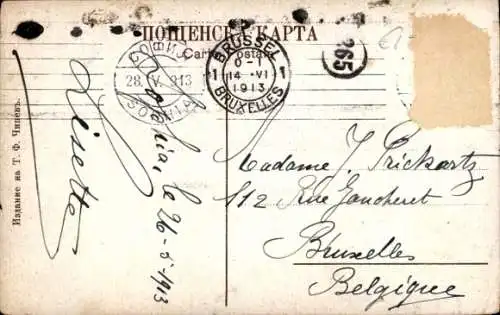 ПОЩЕНСКА КАРТА
Carte postale
СОФИЯ
28. V. 913
SOPHIA
BRUSSEL
1 14 VI 1
1913
BRUXELLES
265
Издание на Т. Ф. Чипевъ.
Lisette
Sophia, le 26-5-1913
Madame J. Prickartz
112 Rue Gaucheret
Bruxelles
Belgique